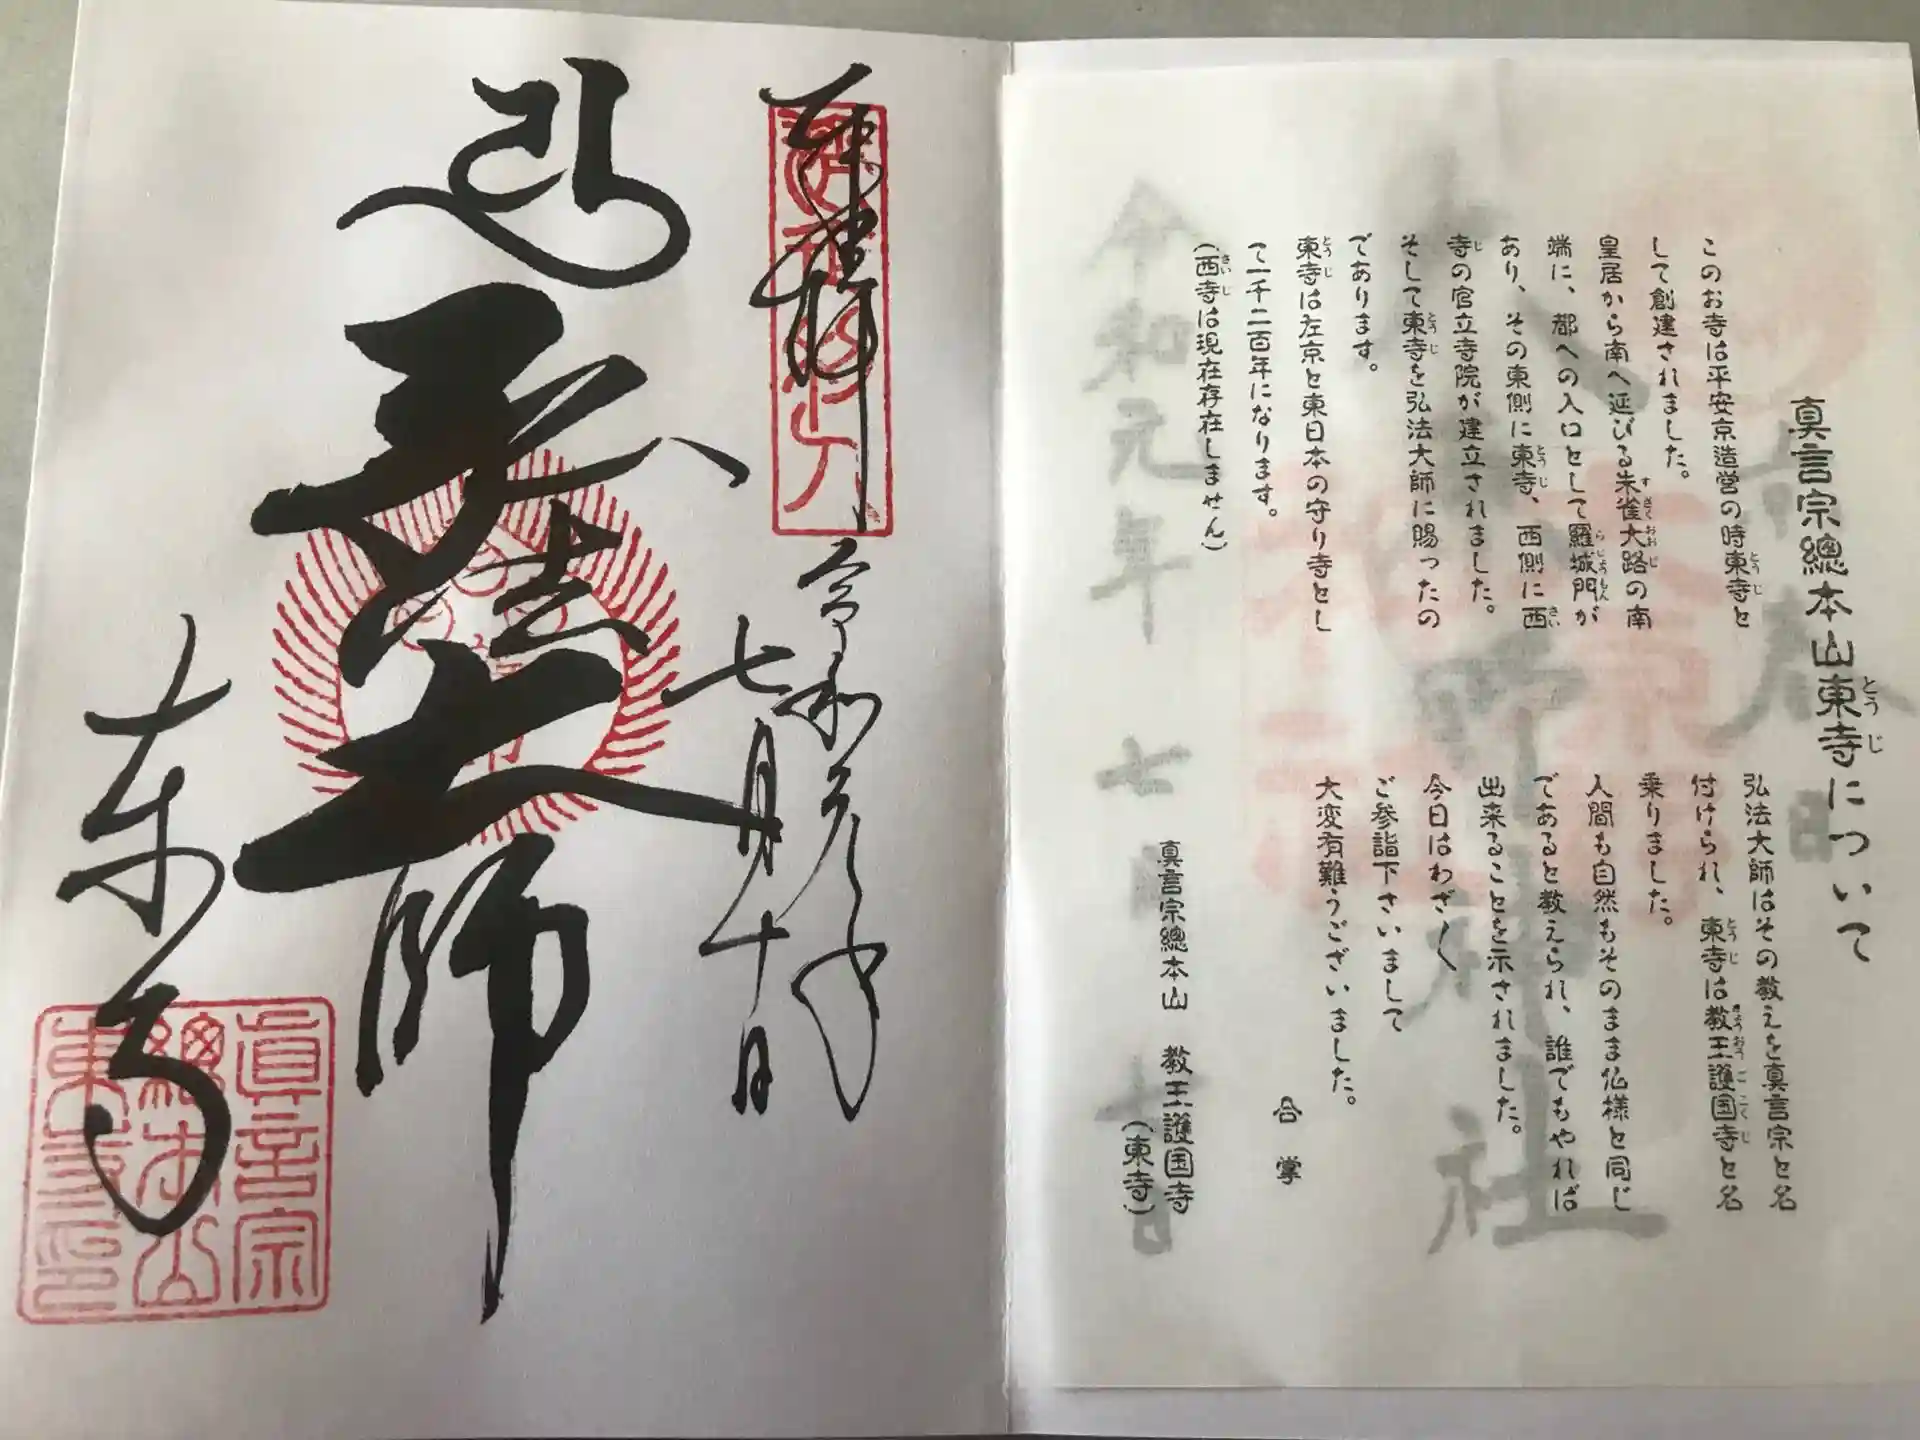 真言宗總本山東寺について
このお寺は平安京造営の時東寺と
して創建されました。
皇居から南へ延びる朱雀大路の南
端に、都への入口として羅城門が
あり、その東側に東寺、西側に西
寺の官立寺院が建立されました。
そして東寺を弘法大師に賜ったの
であります。
東寺は左京と東日本の守り寺とし
て一千二百年になります。
(西寺は現在存在しません)
弘法大師はその教えを真言宗と名
付けられ、東寺は教王護国寺と名
乗りました。
人間も自然もそのまま仏様と同じ
であると教えられ、誰でもやれば
出来ることを示されました。
今日はわざ〱
ご参詣下さいまして
大変有難うございました。
合掌
真言宗總本山 教王護国寺
(東寺)
令和元年 七月十一日
奉拝
令和元年
七月十日
弘法大師
東寺
眞言宗
總本山
東寺印